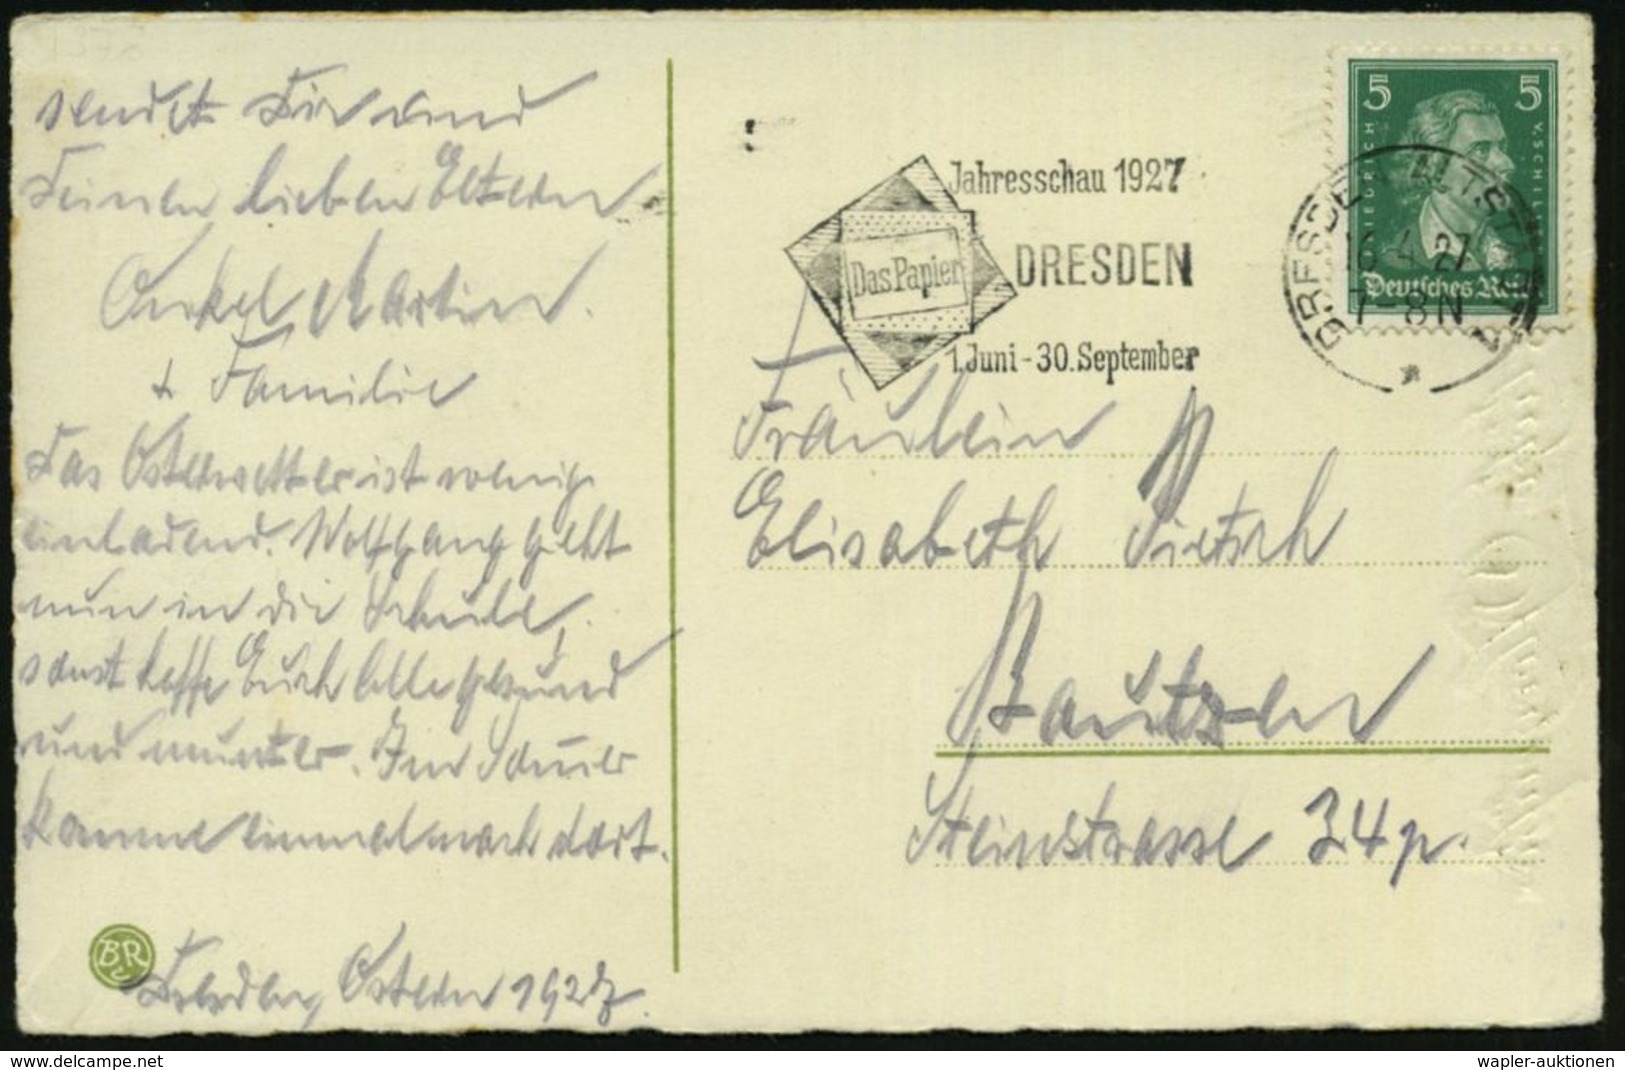 sendet Dir und
Deinen lieben Eltern
Onkel Martin.
+ Familie
Das Osterwetter ist wenig
einladend. Wolfgang geht
nun in die Schule,
sonst hoffe Euch alle gesund
und munter. Im Sommer
komme einmal nach dort.
Dresden, Ostern 1927.
BR
Jahresschau 1927
Das Papier
DRESDEN
1. Juni - 30. September
5 5
FRIEDRICH V. SCHILLER
Deutsches Reich
DRESDEN ALTSTADT
16.4.27
7-8N
*
Fräulein
Elisabeth Pietsch
Bautzen
Steinstrasse 34p.
delcampe.net
wapler-auktionen